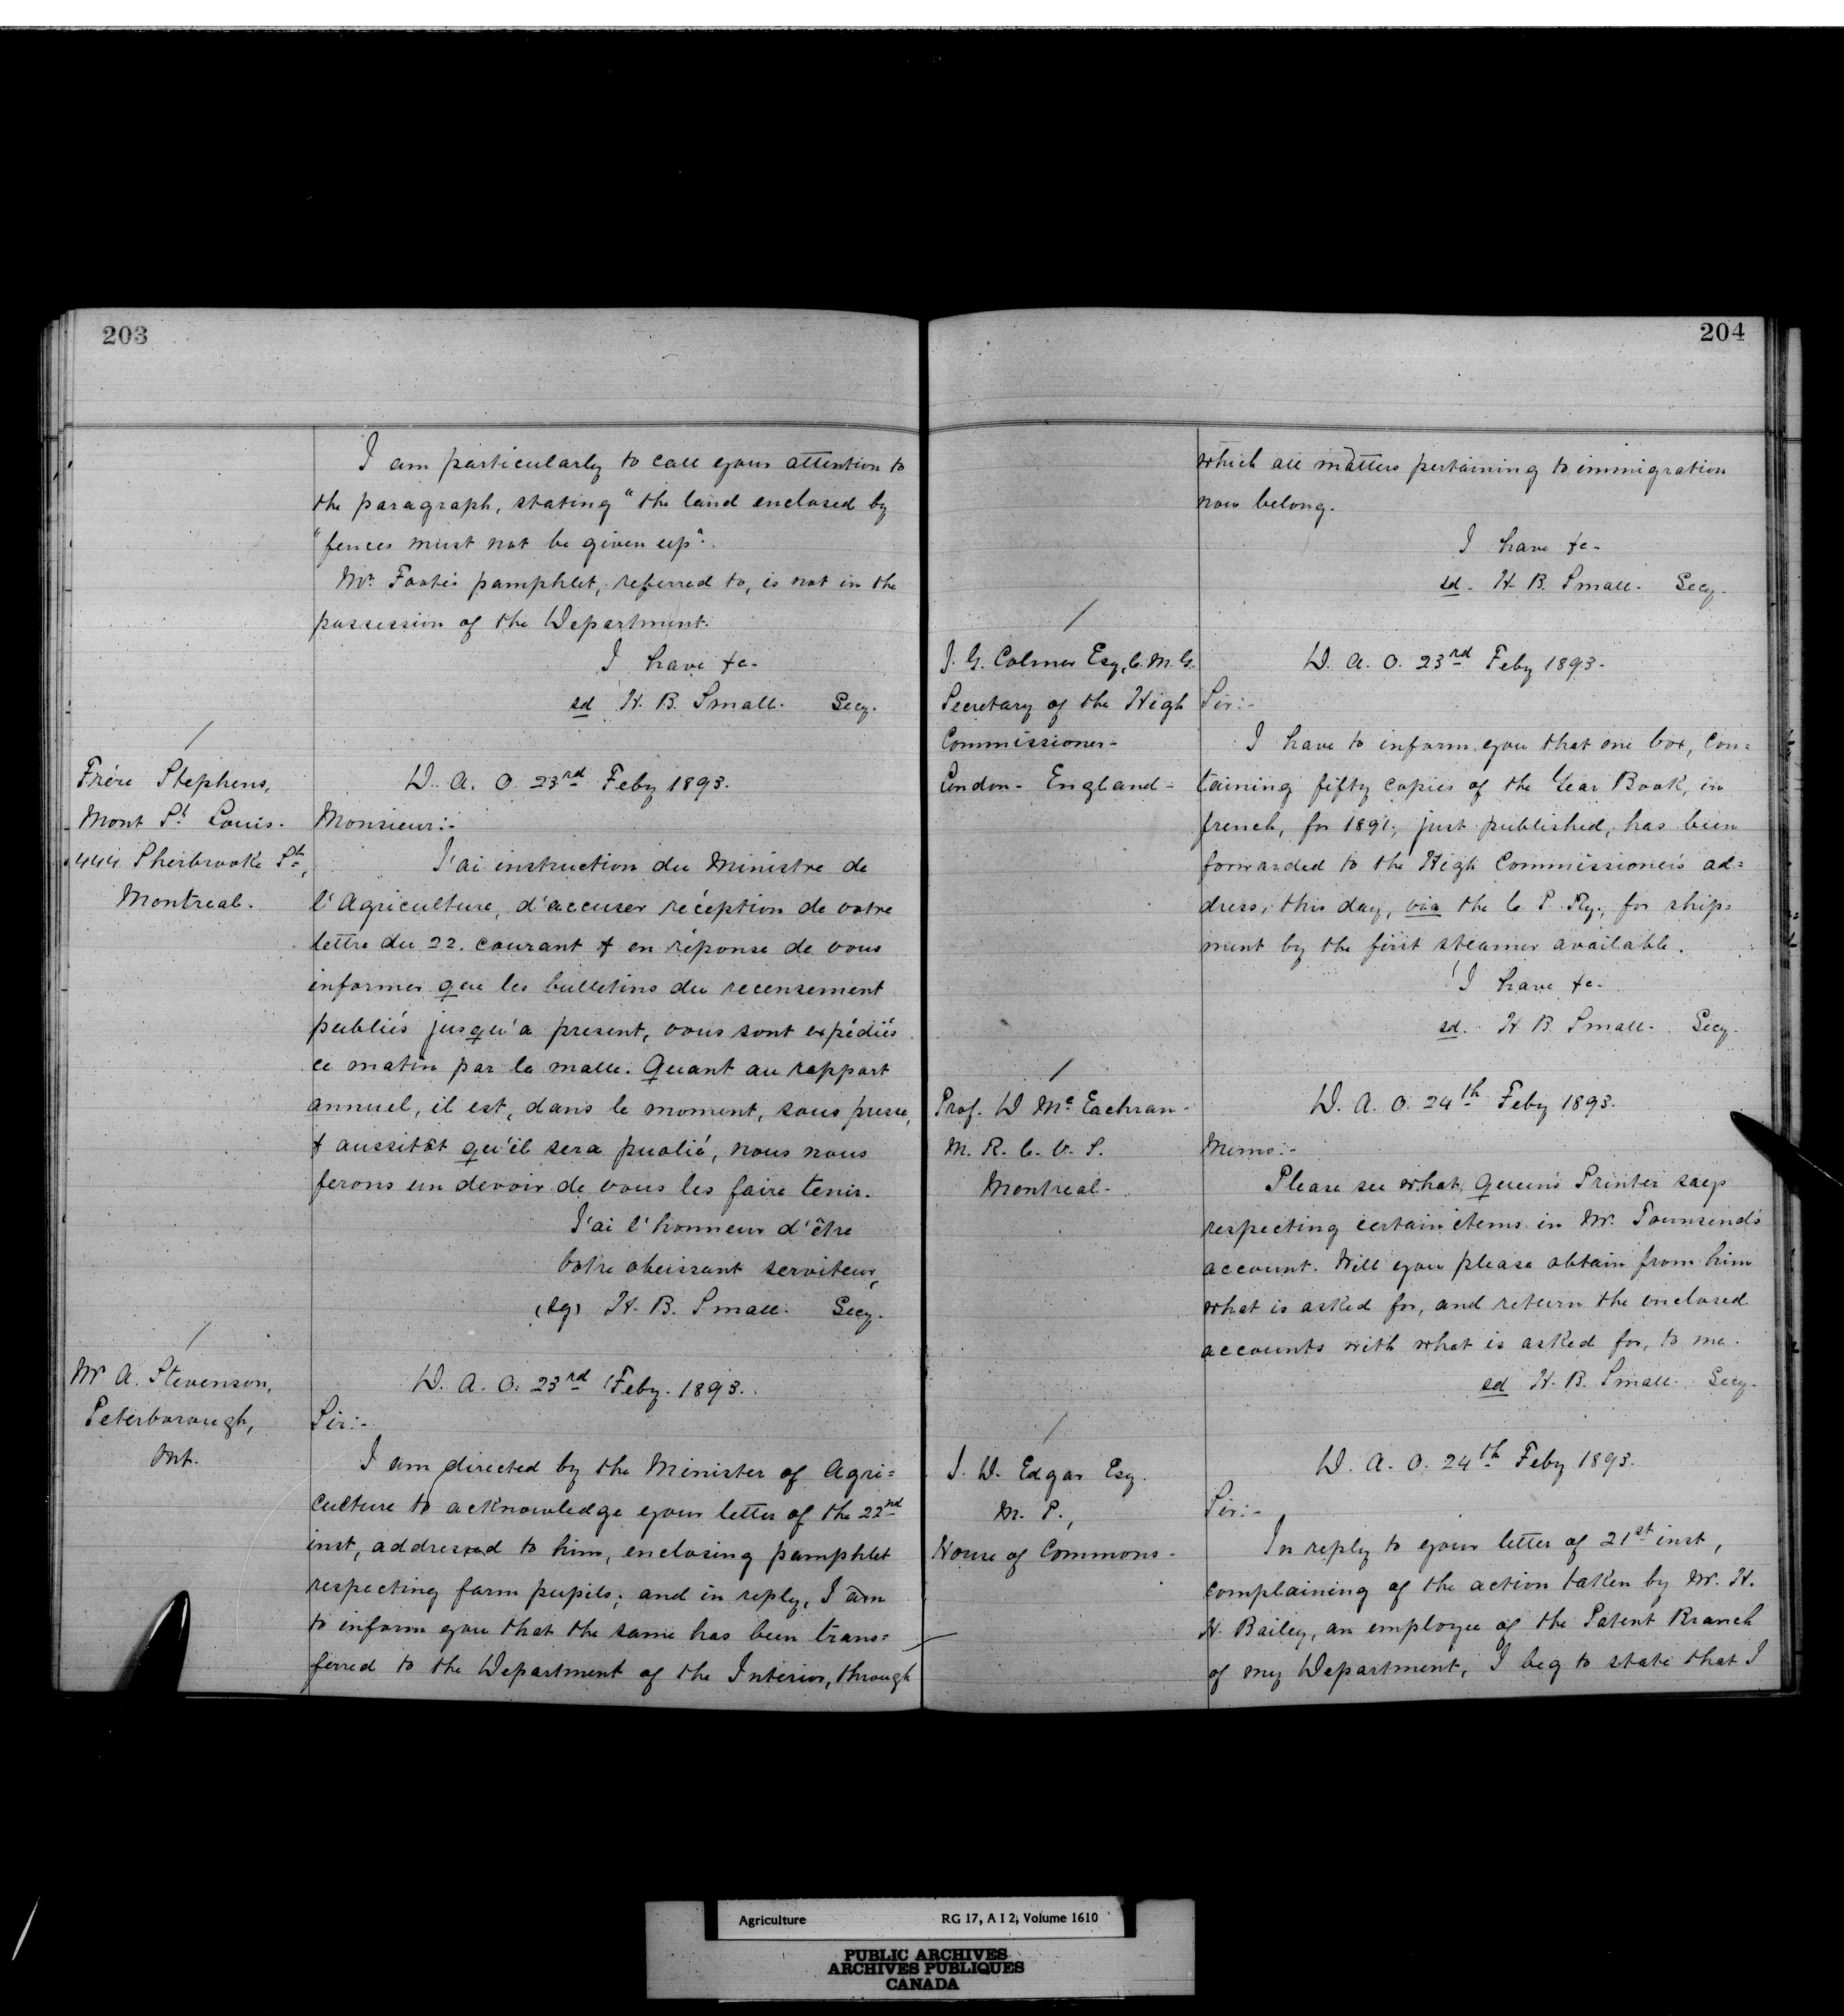 203
I am particularly to call your attention to
the paragraph, stating "the land enclosed by
"fences must not be given up".
Mr. Foote's pamphlet, referred to, is not in the
possession of the Department.
I have &c-
sd H. B. Small. Secy.
Frère Stephens,
Mont St Louis.
444 Sherbrooke St,
Montreal.
D. A. O. 23rd Feby 1893.
Monsieur:-
J'ai instruction du Ministre de
l'Agriculture, d'accuser réception de votre
lettre du 22. courant & en réponse de vous
informer que les bulletins du recensement
publiés jusqu'a present, vous sont expédiés
ce matin par la malle. Quant au rapport
annuel, il est, dans le moment, sous presse,
& aussitôt qu'il sera publié, nous nous
ferons un devoir de vous les faire tenir.
J'ai l'honneur d'être
Votre obeissant serviteur,
(sg) H. B. Small. Secy.
Mr A. Stevenson,
Peterborough,
Ont.
D. A. O. 23rd Feby. 1893.
Sir:-
I am directed by the Minister of Agri=
culture to acknowledge your letter of the 22nd
inst, addressed to him, enclosing pamphlet
respecting farm pupils; and in reply, I am
to inform you that the same has been trans=
ferred to the Department of the Interior, through
204
which all matters pertaining to immigration
now belong.
I have &c-
sd. H. B. Small. Secy.
J. G. Colmer Esq, C. M. G.
Secretary of the High
Commissioner-
London- England-
D. A. O. 23rd Feby 1893.
Sir:-
I have to inform you that one box, con=
taining fifty copies of the Year Book, in
french, for 1891, just published, has been
forwarded to the High Commissioner's ad=
dress, this day, via the C. P. Ry., for ship=
ment by the first steamer available.
I have &c-
sd. H. B. Small. Secy.
Prof. D McEachran-
M. R. C. V. S.
Montreal-
D. A. O. 24th Feby 1893.
Memo:-
Please see what Queen's Printer says
respecting certain items in Mr. Townsend's
account. Will you please obtain from him
what is asked for, and return the enclosed
accounts with what is asked for, to me.
sd H. B. Small. Secy.
J. D. Edgar Esq.
M. P.,
House of Commons-
D. A. O. 24th Feby 1893.
Sir:-
In reply to your letter of 21st inst,
complaining of the action taken by Mr. H.
H. Bailey, an employee of the Patent Branch
of my Department, I beg to state that I
Agriculture RG 17, A I 2, Volume 1610
PUBLIC ARCHIVES
ARCHIVES PUBLIQUES
CANADA